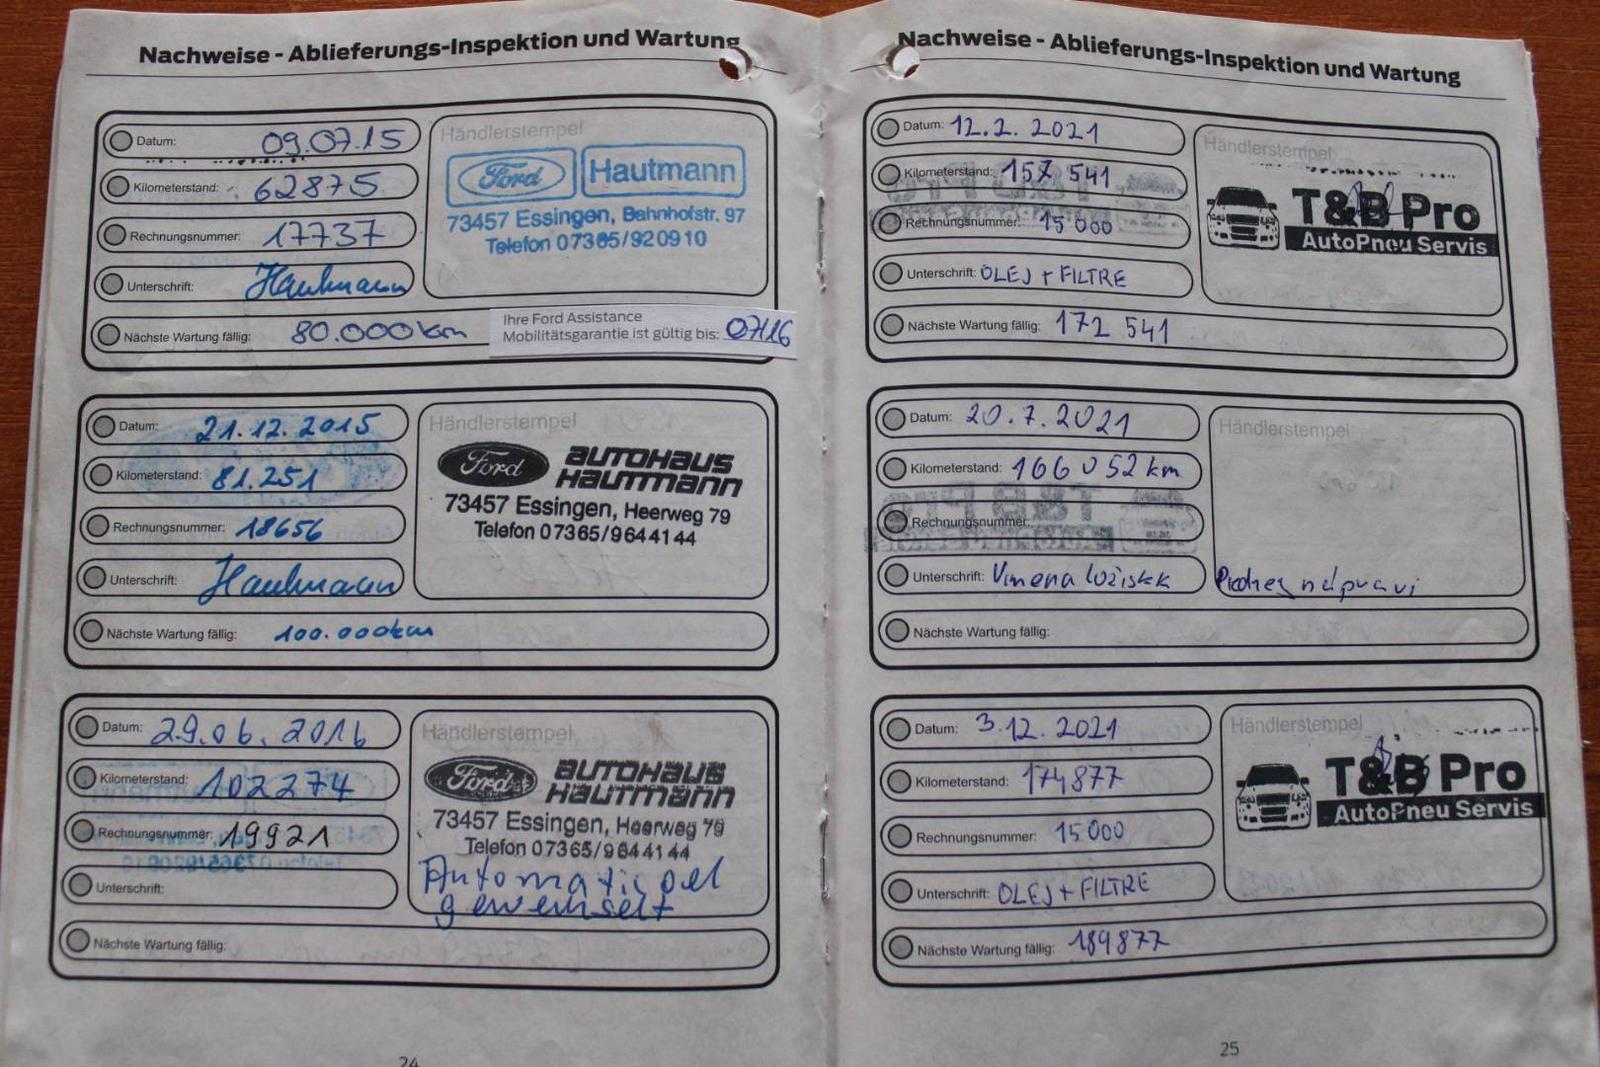 Nachweise - Ablieferungs-Inspektion und Wartung
Datum: 09.07.15
Kilometerstand: 62875
Rechnungsnummer: 17737
Unterschrift: Hautmann
Händlerstempel
Ford Hautmann
73457 Essingen, Bahnhofstr. 97
Telefon 07365/920910
Nächste Wartung fällig: 80.000km
Ihre Ford Assistance
Mobilitätsgarantie ist gültig bis: 07/16
Datum: 21.12.2015
Kilometerstand: 81.251
Rechnungsnummer: 18656
Unterschrift: Hautmann
Händlerstempel
Ford AUTOHAUS
HAUTMANN
73457 Essingen, Heerweg 79
Telefon 07365/9644144
Nächste Wartung fällig: 100.000km
Datum: 29.06.2016
Kilometerstand: 102274
Rechnungsnummer: 19921
Unterschrift:
Händlerstempel
Ford AUTOHAUS
HAUTMANN
73457 Essingen, Heerweg 79
Telefon 07365/9644144
Automaticoel
Nächste Wartung fällig:
24
Nachweise - Ablieferungs-Inspektion und Wartung
Datum: 12.2. 2021
Kilometerstand: 157 541
Rechnungsnummer: 15 000
Unterschrift: OLEJ + FILTRE
Händlerstempel
T&B Pro
AutoPneu Servis
Nächste Wartung fällig: 172 541
Datum: 20.7.2021
Kilometerstand: 166 052 km
Rechnungsnummer:
Unterschrift: Vmena ložiskk
Händlerstempel
nápravi
Nächste Wartung fällig:
Datum: 3.12. 2021
Kilometerstand: 174877
Rechnungsnummer: 15000
Unterschrift: OLEJ + FILTRE
Händlerstempel
T&B Pro
AutoPneu Servis
Nächste Wartung fällig: 189877
25